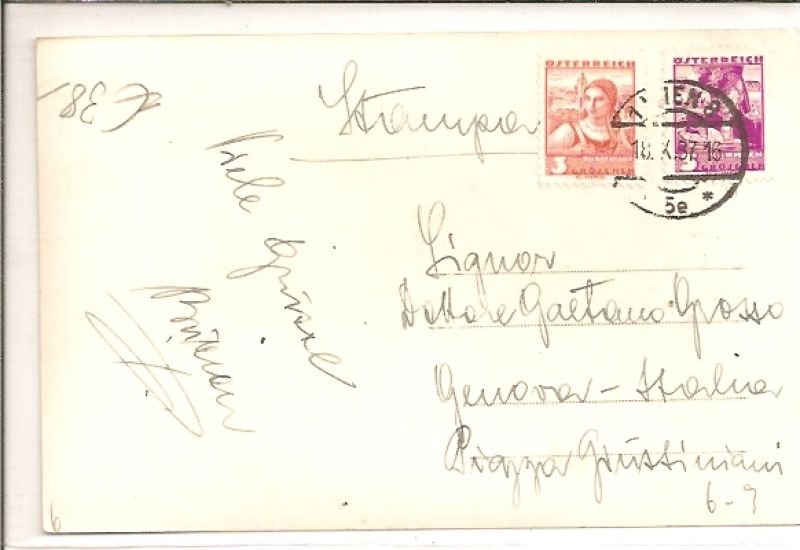 Stampa
ÖSTERREICH
3
GROSCHEN
ÖSTERREICH
GROSCHEN
18.X.37.16
5e *
Viele
Grüsse
Signor
Dottore Gaetano Grosso
Genova - Italia
Piazza Giustiniani
6-9
6